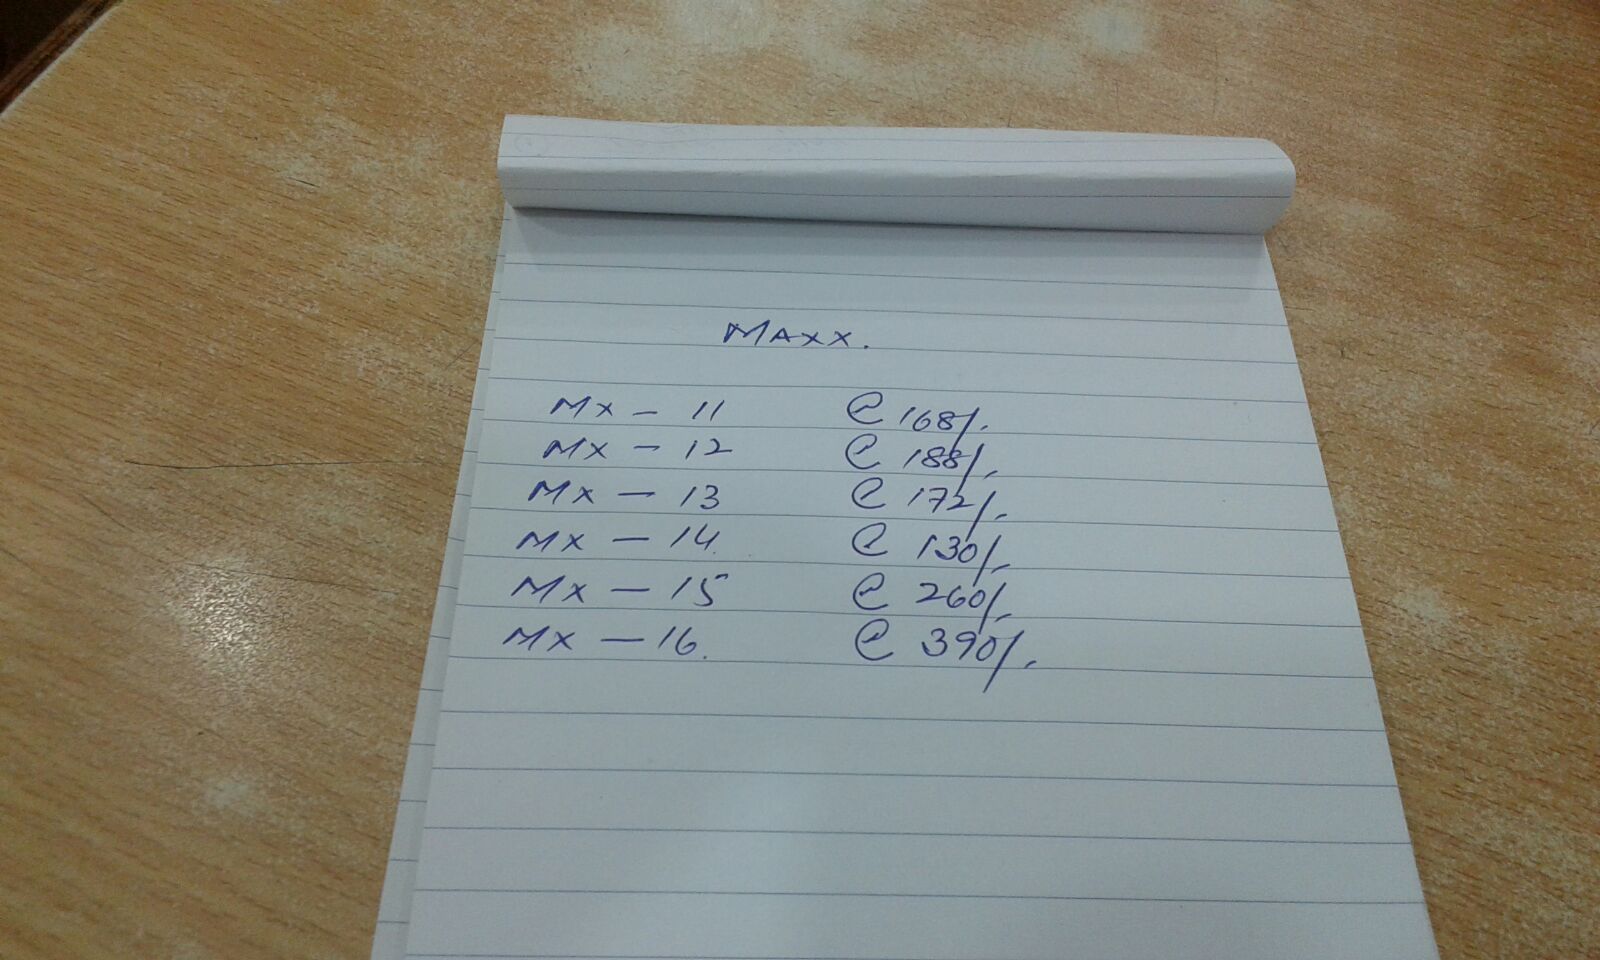 MAXX.
MX - 11 @ 168/.
MX - 12 @ 188/.
MX - 13 @ 172/.
MX - 14. @ 130/.
MX - 15 @ 260/.
MX - 16. @ 390/.